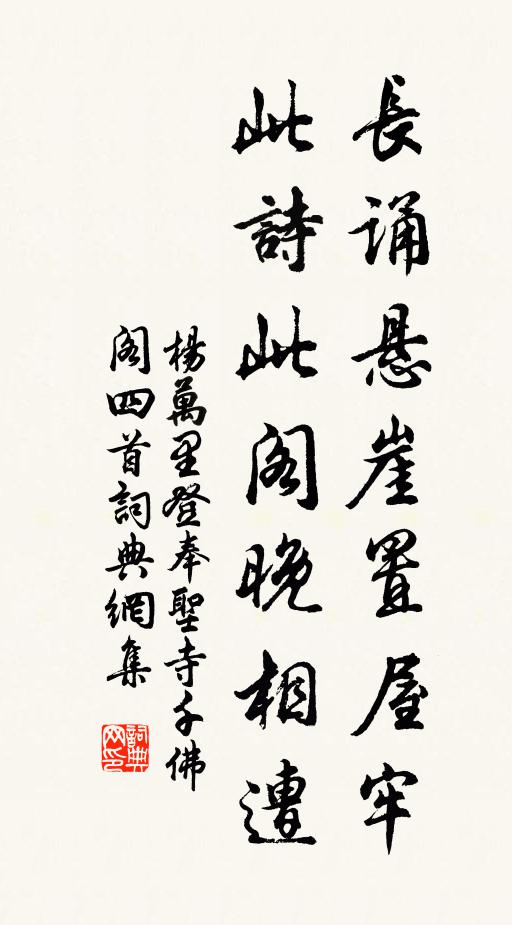 長诵悬崖置屋牢
此詩此阁晚相遭
楊萬里登奉聖寺千佛
阁四首詞典網集
詞典
网印